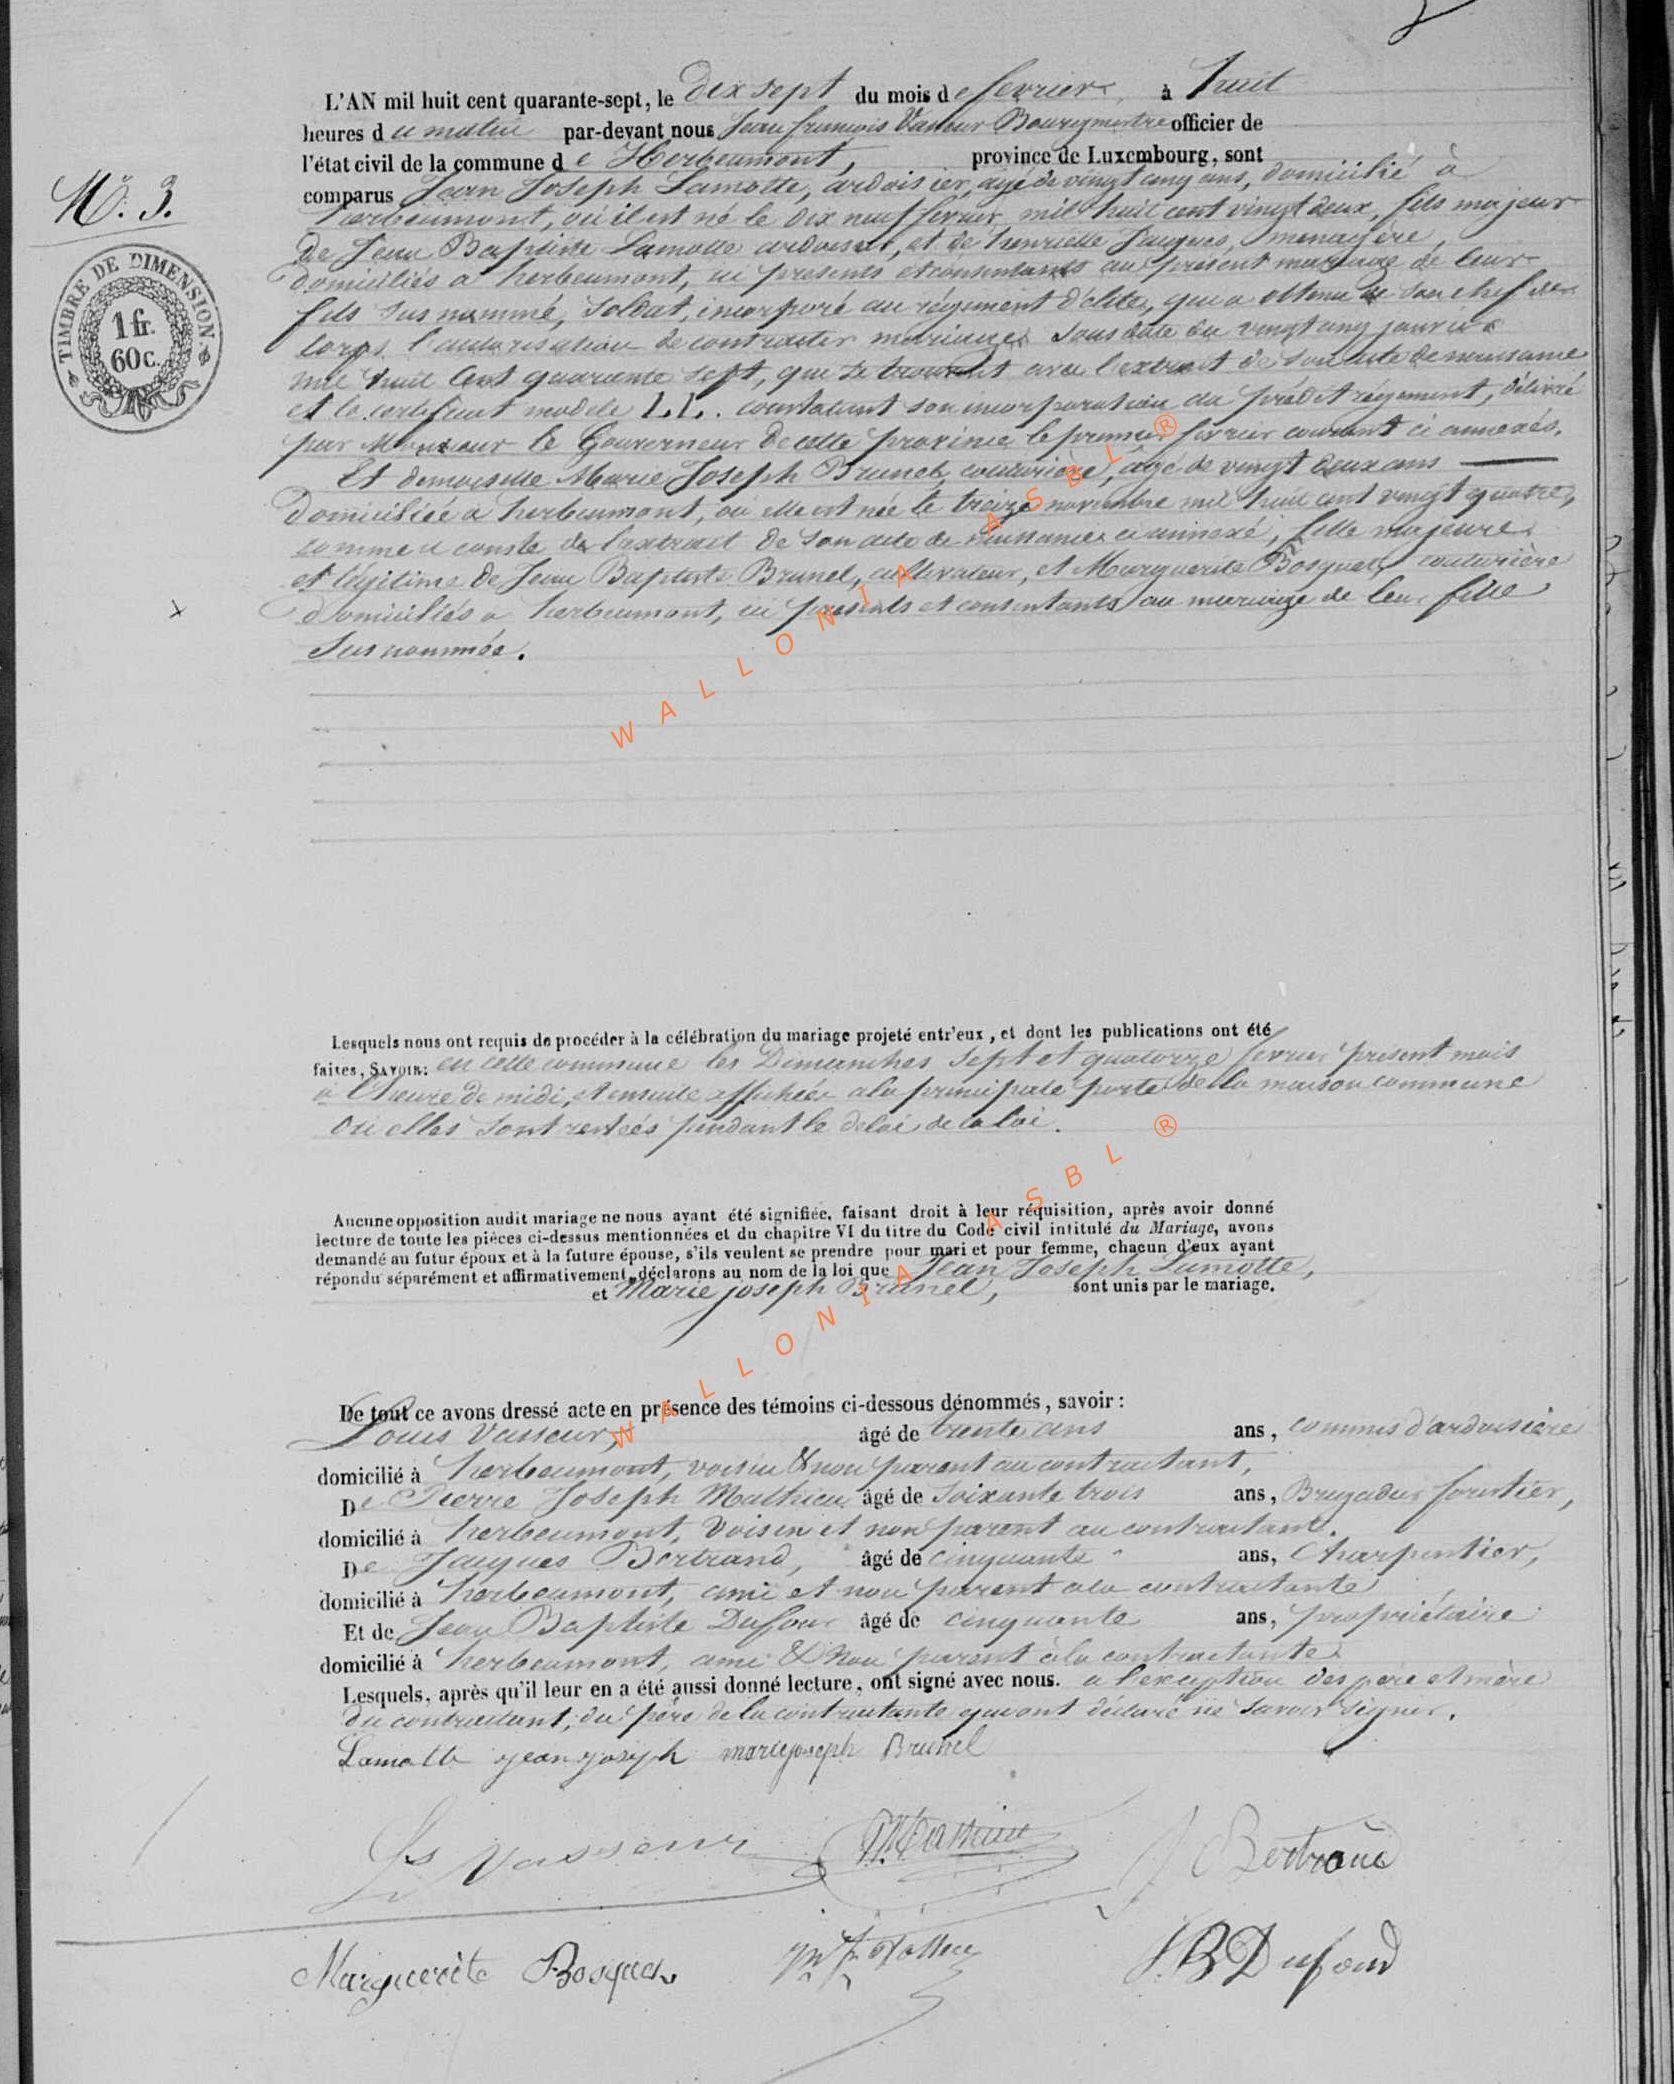 L'AN mil huit cent quarante-sept, le dix sept du mois de fevrier, à huit
heures du matin par-devant nous Jean françois Vasseur Bourgmestre officier de
l'état civil de la commune de Herbeumont, province de Luxembourg, sont
comparus Jean Joseph Lamotte, ardoisier, agé de vingt cinq ans, domicilié à
herbeumont, où il est né le dix neuf fevrier mil huit cent vingt deux, fils majeur
de Jean Baptiste Lamotte ardoisier, et de henriette Jacques, menagère,
domiciliés a herbeumont, ici presents et consentants au present mariage de leur
fils sus nommé, soldat, incorporé au régiment d'élite, qui a obtenu de son chef de
corps l'autorisation de contracter mariage sous date du vingt cinq janvier
mil huit cent quarente sept, qui se trouvent avec l'extrait de son acte de naissance
et le certificat modele LL. constatant son incorporation au prédit régiment, délivré
par Monsieur le Gouverneur de cette province le premier fevrier courant ci annexés.
Et demoiselle Marie Joseph Brunel, couturière, agé de vingt deux ans
domiciliée à herbeumont, où elle est née le treize novembre mil huit cent vingt quatre,
comme il conste de l'extrait de son acte de naissance ci annexé, fille majeure
et légitime de Jean Baptiste Brunel, cultivateur, et Marguerite Bosquet, couturière
domiciliés a herbeumont, ici presents et consentants au mariage de leur fille
sus nommée.
No. 3.
TIMBRE DE DIMENSION.
1 fr.
60 c.
Lesquels nous ont requis de procéder à la célébration du mariage projeté entr'eux, et dont les publications ont été
faites, SAVOIR: en cette commune les Dimanches sept et quatorze fevrier présent mois
à l'heure de midi, et ensuite affichées a la principale porte de la maison commune
où elles sont restées pendant le delai de la loi.
Aucune opposition audit mariage ne nous ayant été signifiée, faisant droit à leur réquisition, après avoir donné
lecture de toute les pièces ci-dessus mentionnées et du chapitre VI du titre du Code civil intitulé du Mariage, avons
demandé au futur époux et à la future épouse, s'ils veulent se prendre pour mari et pour femme, chacun d'eux ayant
répondu séparément et affirmativement, déclarons au nom de la loi que Jean Joseph Lamotte,
et Marie joseph Brunel, sont unis par le mariage.
De tout ce avons dressé acte en présence des témoins ci-dessous dénommés, savoir:
Louis Vasseur, âgé de trente ans ans, commis d'ardoisière
domicilié à herbeumont, voisin & non parent au contractant,
De Pierre Joseph Mathieu âgé de soixante trois ans, Brigadier forestier,
domicilié à herbeumont, voisin et non parent au contractant.
De Jacques Bertrand, âgé de cinquante ans, Charpentier,
domicilié à herbeumont, ami et non parent a la contractante
Et de Jean Baptiste Dufour âgé de cinquante ans, propriétaire
domicilié à herbeumont, ami & non parent à la contractante
Lesquels, après qu'il leur en a été aussi donné lecture, ont signé avec nous. a l'exception des père et mère
du contractant, du père de la contractante qui ont déclaré ne savoir signer.
Lamotte jean joseph marie joseph Brunel
Ls Vasseur
J Bertrand
Marguerite Bosquet
WALLONIA ASBL ®
WALLONIA ASBL ®